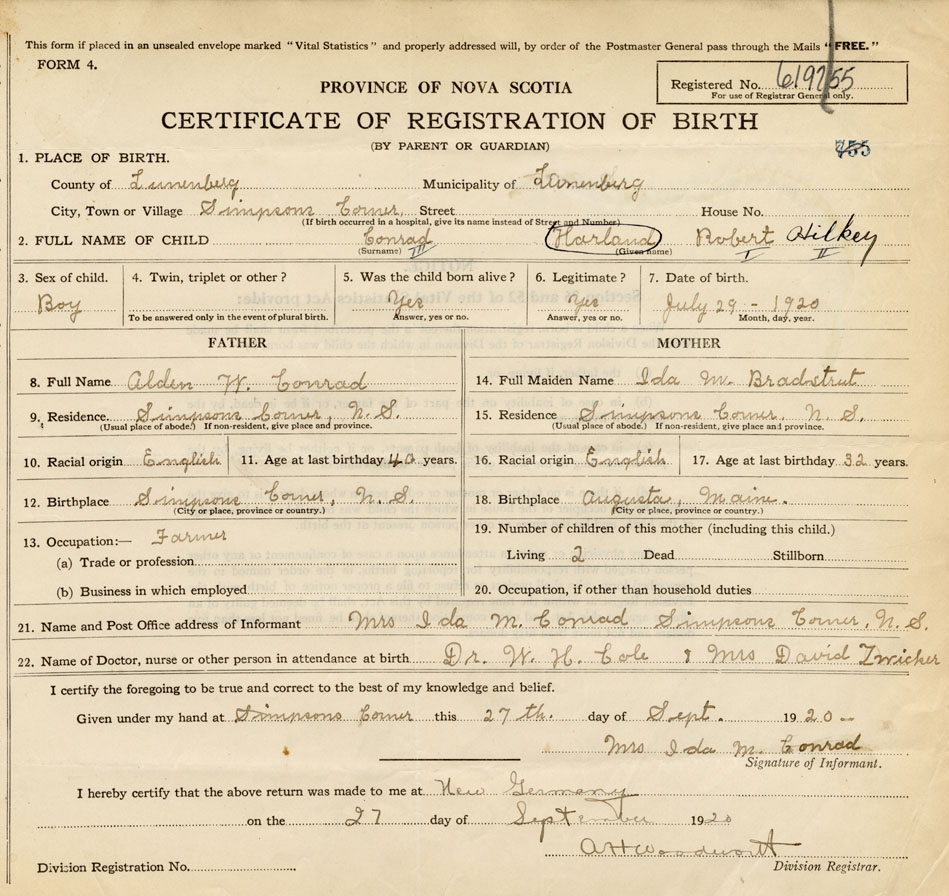 This form if placed in an unsealed envelope marked "Vital Statistics" and properly addressed will, by order of the Postmaster General pass through the Mails "FREE."
FORM 4.
Registered No. 619255
For use of Registrar General only.
PROVINCE OF NOVA SCOTIA
CERTIFICATE OF REGISTRATION OF BIRTH
(BY PARENT OR GUARDIAN)
755
1. PLACE OF BIRTH.
County of Lunenberg Municipality of Lunenberg
City, Town or Village Simpsons Corner, Street House No.
(If birth occurred in a hospital, give its name instead of Street and Number)
2. FULL NAME OF CHILD Conrad Harland Robert Hilkey
(Surname) III (Given name) I II
3. Sex of child. 4. Twin, triplet or other? 5. Was the child born alive? 6. Legitimate? 7. Date of birth.
Boy Yes Yes July 29 - 1920
To be answered only in the event of plural birth. Answer, yes or no. Answer, yes or no. Month, day, year.
FATHER MOTHER
8. Full Name Alden W. Conrad 14. Full Maiden Name Ida M. Bradstrut
9. Residence. Simpsons Corner, N.S. 15. Residence Simpsons Corner, N.S.
(Usual place of abode.) If non-resident, give place and province. (Usual place of abode.) If non-resident, give place and province.
10. Racial origin English 11. Age at last birthday 40 years. 16. Racial origin English 17. Age at last birthday 32 years.
12. Birthplace Simpsons Corner, N.S. 18. Birthplace Augusta, Maine.
(City or place, province or country.) (City or place, province or country.)
13. Occupation:— Farmer 19. Number of children of this mother (including this child.)
(a) Trade or profession Living 2 Dead Stillborn
(b) Business in which employed 20. Occupation, if other than household duties
21. Name and Post Office address of Informant Mrs Ida M. Conrad Simpsons Corner, N.S.
22. Name of Doctor, nurse or other person in attendance at birth Dr. W. H. Cole & Mrs David Zwicker
I certify the foregoing to be true and correct to the best of my knowledge and belief.
Given under my hand at Simpsons Corner this 27th. day of Sept. 1920—
Mrs Ida M. Conrad
Signature of Informant.
I hereby certify that the above return was made to me at New Germany
on the 27 day of September 1920
A H Woodworth
Division Registration No. Division Registrar.